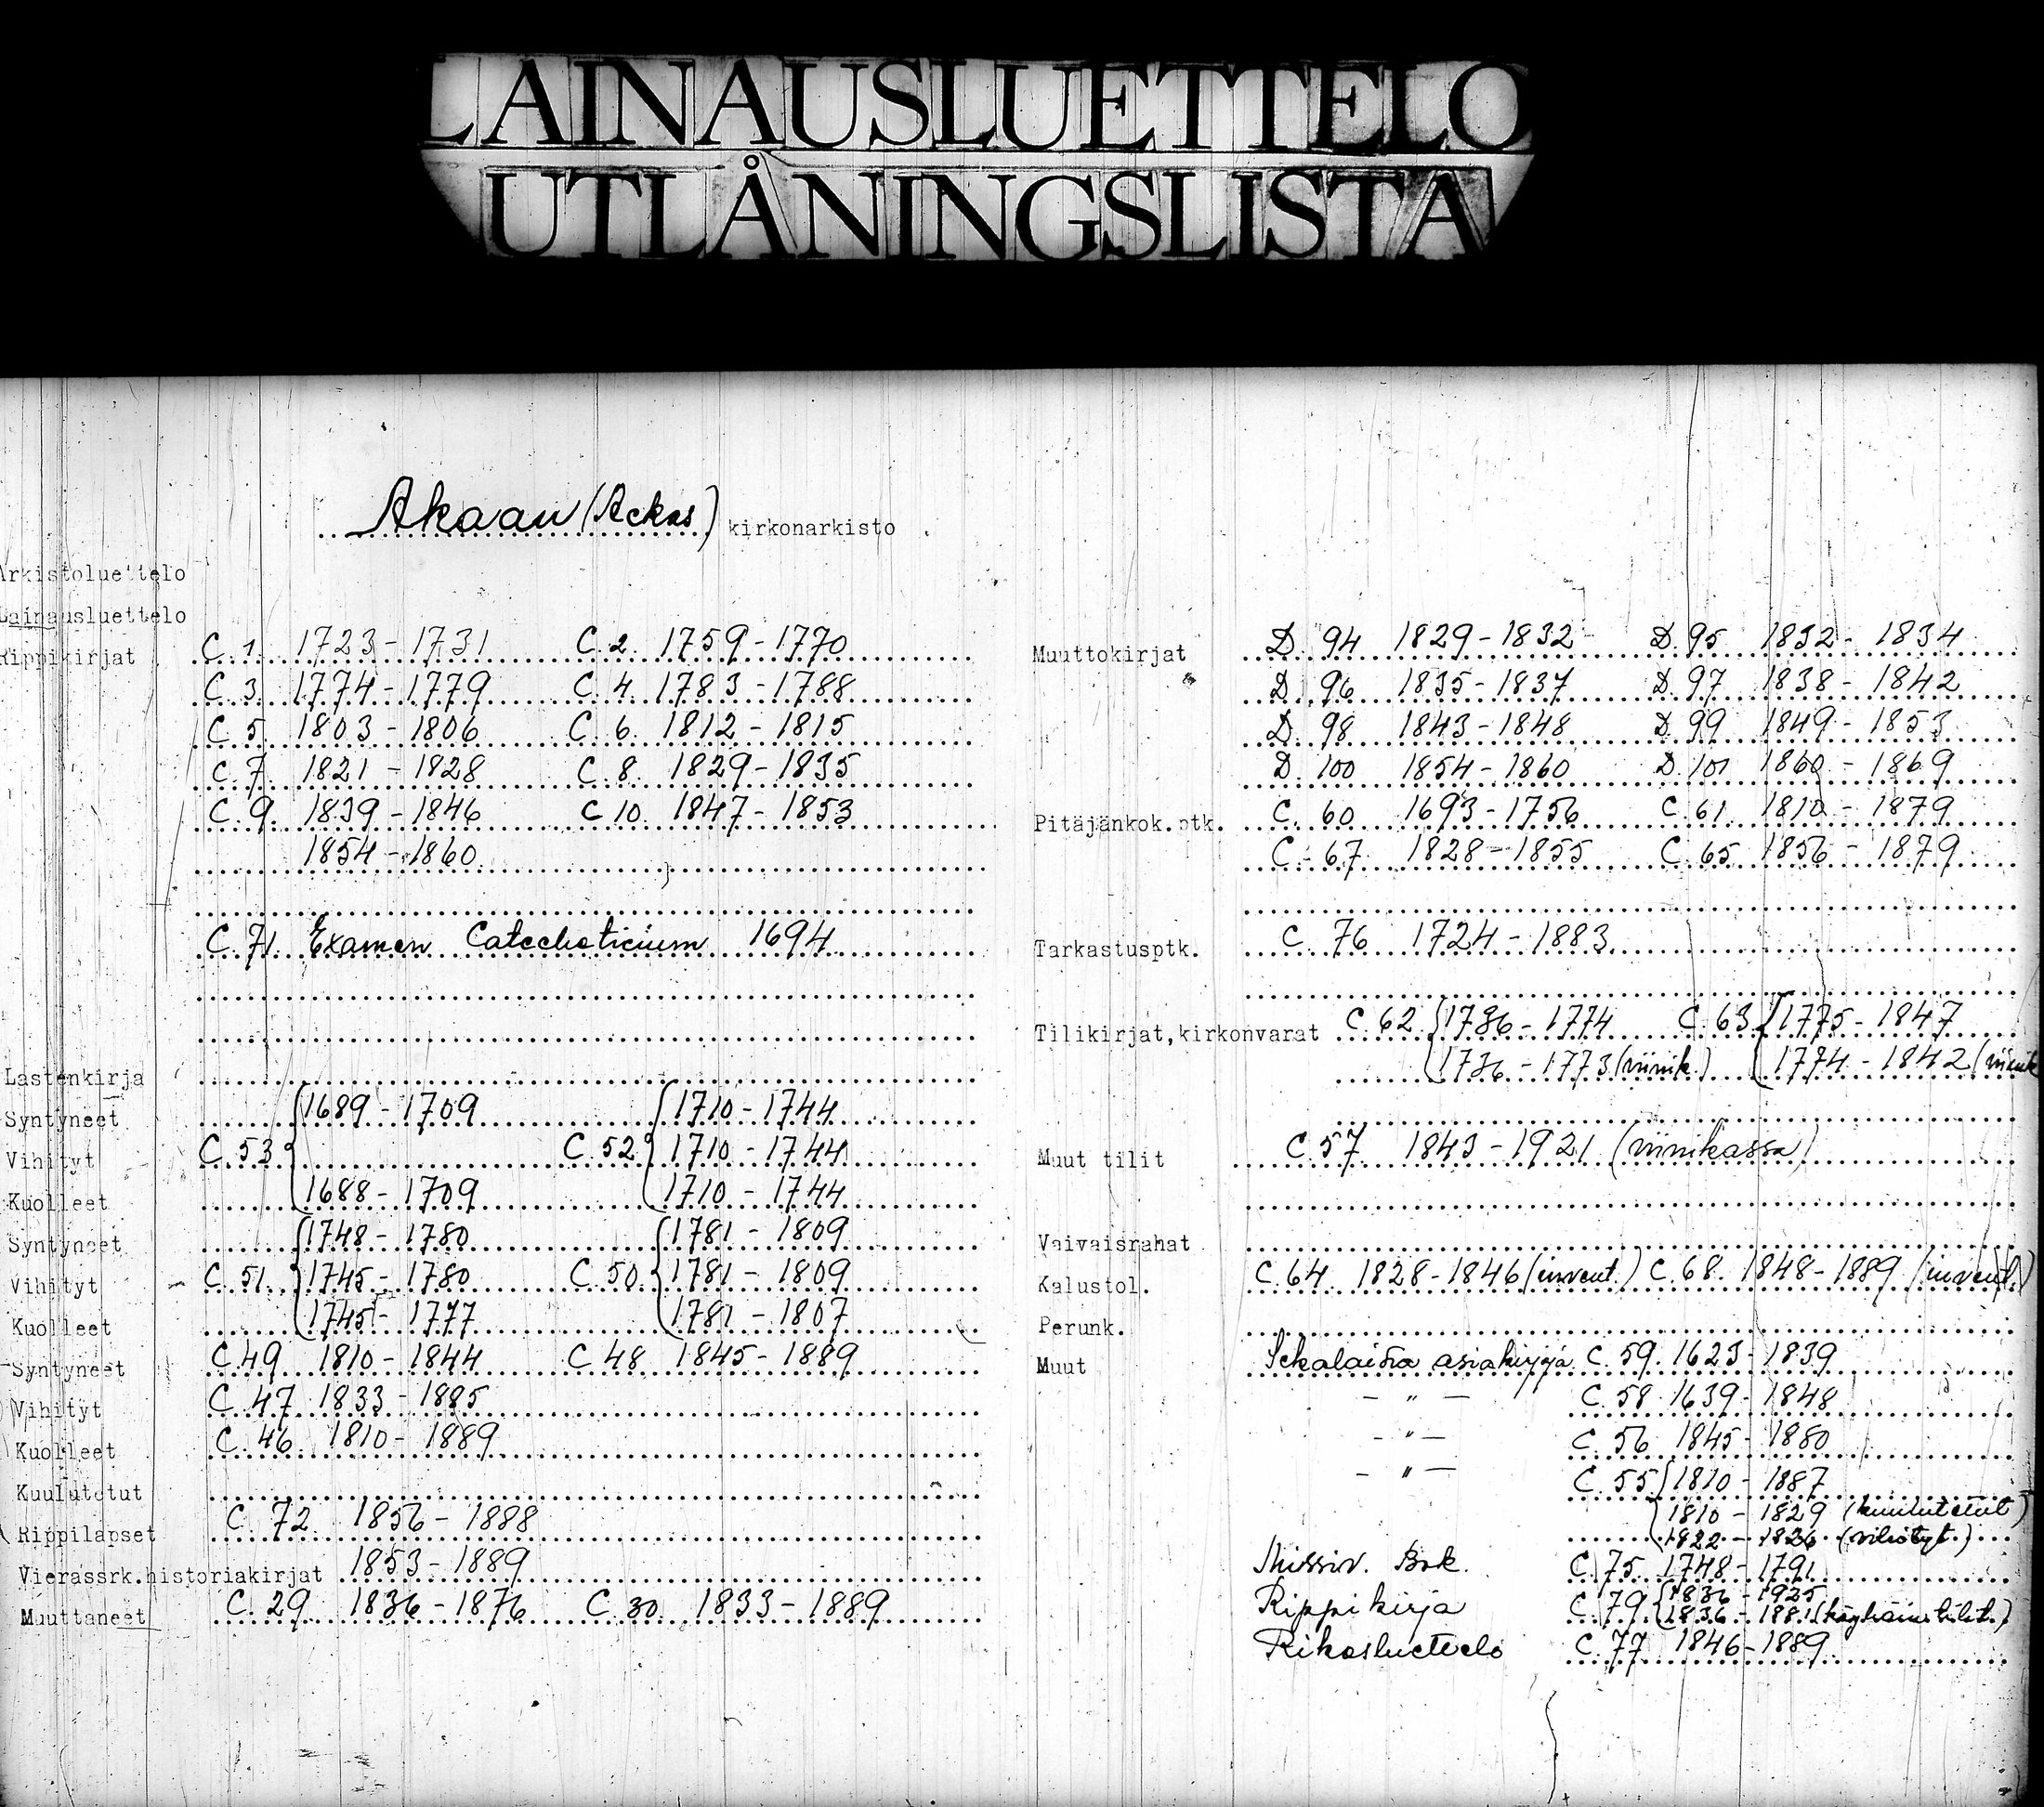 LAINAUSLUETTELO
UTLÅNINGSLISTA
Akaan (Ackas) kirkonarkisto
Arkistoluettelo
Lainausluettelo
Rippikirjat C. 1. 1723-1731 C. 2. 1759-1770
C. 3. 1774-1779 C. 4. 1783-1788
C. 5. 1803-1806 C. 6. 1812-1815
C. 7. 1821-1828 C. 8. 1829-1835
C. 9. 1839-1846 C 10. 1847-1853
1854-1860
C. 71. Examen Catecheticium 1694
Lastenkirja
Syntyneet 1689-1709 1710-1744
Vihityt C. 53 C. 52 1710-1744
Kuolleet 1688-1709 1710-1744
Syntyneet 1748-1780 1781-1809
Vihityt C. 51. 1745-1780 C. 50. 1781-1809
Kuolleet 1745-1777 1781-1807
Syntyneet C. 49 1810-1844 C. 48 1845-1889
Vihityt C. 47 1833-1885
Kuolleet C. 46. 1810-1889
Kuulutetut
Rippilapset C. 72 1856-1888
Vierassrk.historiakirjat 1853-1889
Muuttaneet C. 29 1836-1876 C. 30. 1833-1889
Muuttokirjat D. 94 1829-1832 D. 95 1832-1834
D. 96 1835-1837 D. 97 1838-1842
D. 98 1843-1848 D. 99 1849-1853
D. 100 1854-1860 D. 101 1860-1869
Pitäjänkok.ptk. C. 60 1693-1756 C. 61. 1810-1879
C. 67. 1828-1855 C. 65 1856-1879
Tarkastusptk. C. 76 1724-1883
Tilikirjat,kirkonvarat C. 62. 1736-1774 C. 63. 1775-1847
1736-1773 (viinik.) 1774-1842
Muut tilit C. 57. 1843-1921 (viinikassa)
Vaivaisrahat
Kalustol. C. 64. 1828-1846 (invent.) C. 68. 1848-1889 (invent.)
Perunk.
Muut Sekalaisia asiakirjoja C. 59. 1623-1839
- " - C. 58. 1639-1848
- " - C. 56 1845-1880
- " - C. 55 1810-1887
1810-1829 (kuulutetut)
1822-1826 (vihityt)
Missiv. Bok. C. 75. 1748-1791
Rippikirja C. 79 1836-1925
1836-1881
Rikosluettelo C. 77 1846-1889